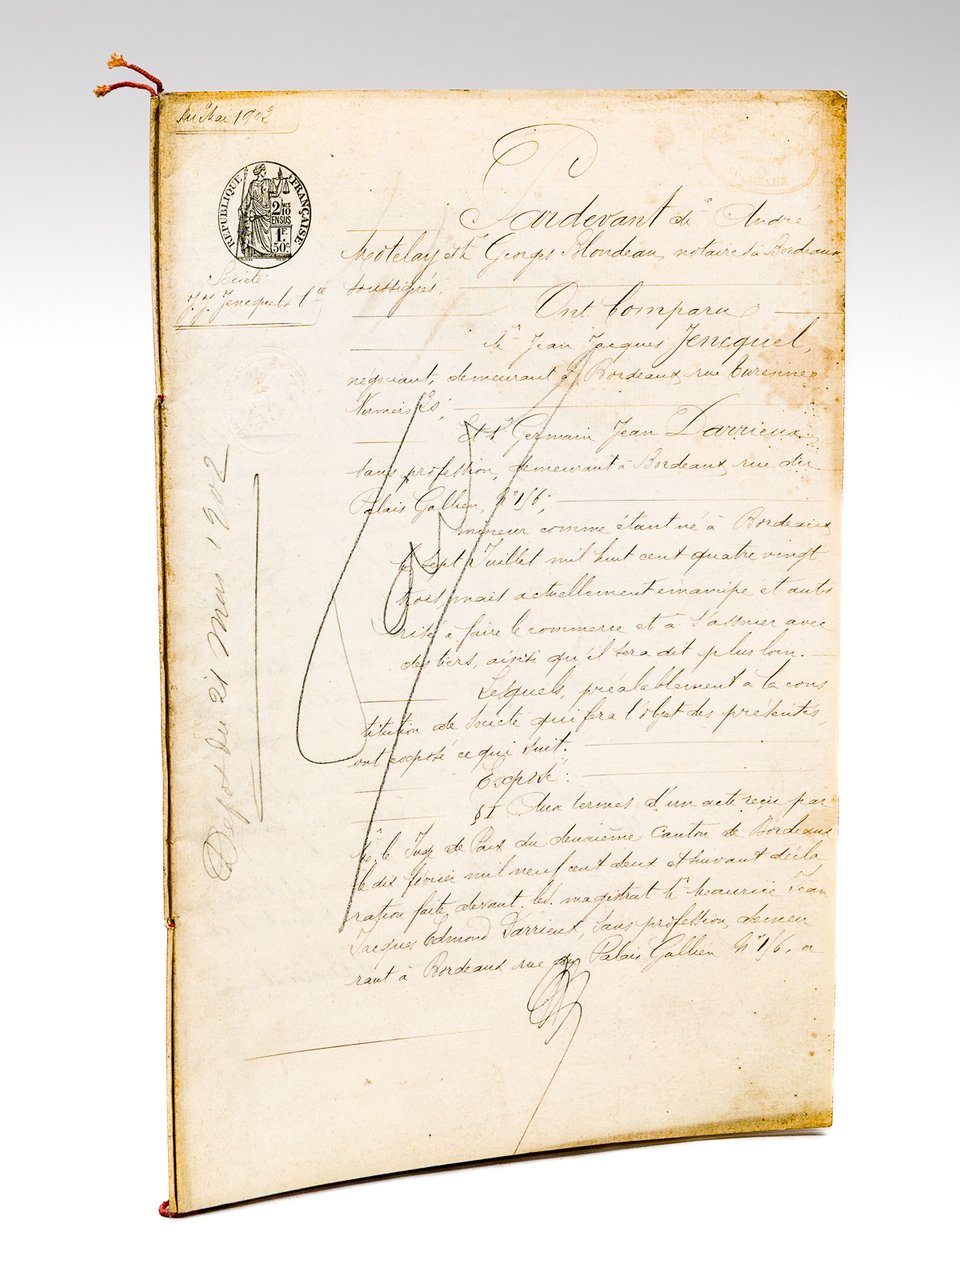 Mai 1902
RÉPUBLIQUE FRANÇAISE
2/10
EN SUS
1F
50c
Société
J. J. Jencquel & Cie
Depot du 21 Mars 1902
Pardevant Me André
Motelay et Me Georges Blondeau, notaires à Bordeaux
soussignés.
Ont Comparu
Mr Jean Jacques Jencquel,
négociant, demeurant à Bordeaux, rue Turenne
Numéro
Et Mr Germain Jean Darrieux,
sans profession, demeurant à Bordeaux, rue du
Palais Gallien, No 156;
mineur comme étant né à Bordeaux
le sept Juillet mil huit cent quatre vingt
trois mais actuellement émancipé et auto
risé à faire le commerce et à s'associer avec
des tiers, ainsi qu'il sera dit plus loin.
Lesquels, préalablement à la cons
titution de Société qui fera l'objet des présentes,
ont exposé ce qui suit:
Exposé:
§ I Aux termes d'un acte reçu par
Mr le Juge de Paix du deuxième canton de Bordeaux
le dix février mil neuf cent deux et suivant décla
ration faite, devant led. magistrat Mr Maurice Jean
Jacques Edmond Darrieux, sans profession, demeu
rant à Bordeaux rue du Palais Gallien No 156, a